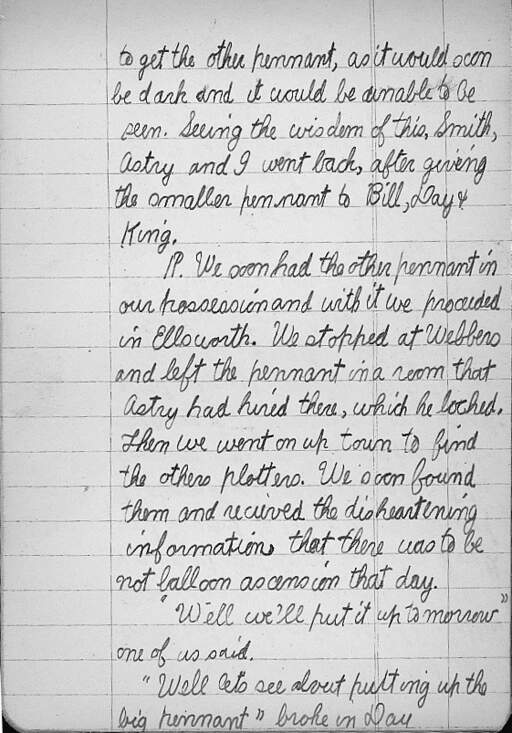 to get the other pennant, as it would soon
be dark and it would be unable to be
seen. Seeing the wisdem of this, Smith,
Astry and I went back, after giveing
the smaller pennant to Bill, Day &
King.
P. We soon had the other pennant in
our possession and with it we proceded
in Ellsworth. We stopped at Webbers
and left the pennant in a room that
Astry had hired there, which he locked.
Then we went on up town to find
the others plotters. We soon found
them and recieved the disheartening
information, that there was to be
not balloon ascension that day.
"Well we'll put it up tomorrow"
one of us said.
"Well lets see about putting up the
big pennant" broke in Day